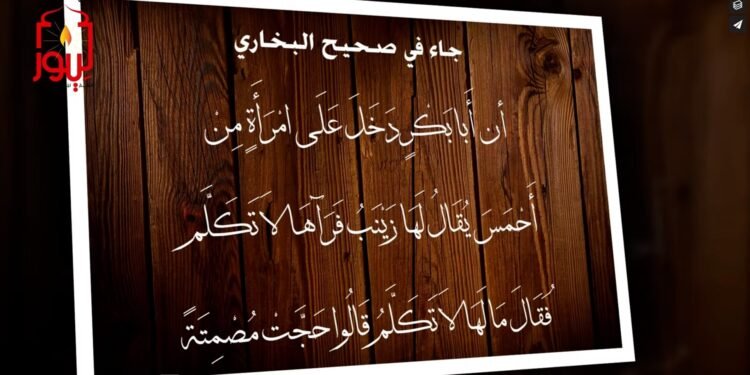 جاء في صحيح البخاري
أن أَبَا بَكْرٍ دَخَلَ عَلَى امْرَأَةٍ مِنْ
أَحْمَسَ يُقَالُ لَهَا زَيْنَبُ فَرَآهَا لاَ تَكَلَّم
فَقَالَ مَا لَهَا لاَ تَكَلَّمُ قَالُوا حَجَّتْ مُصْمِتَةً